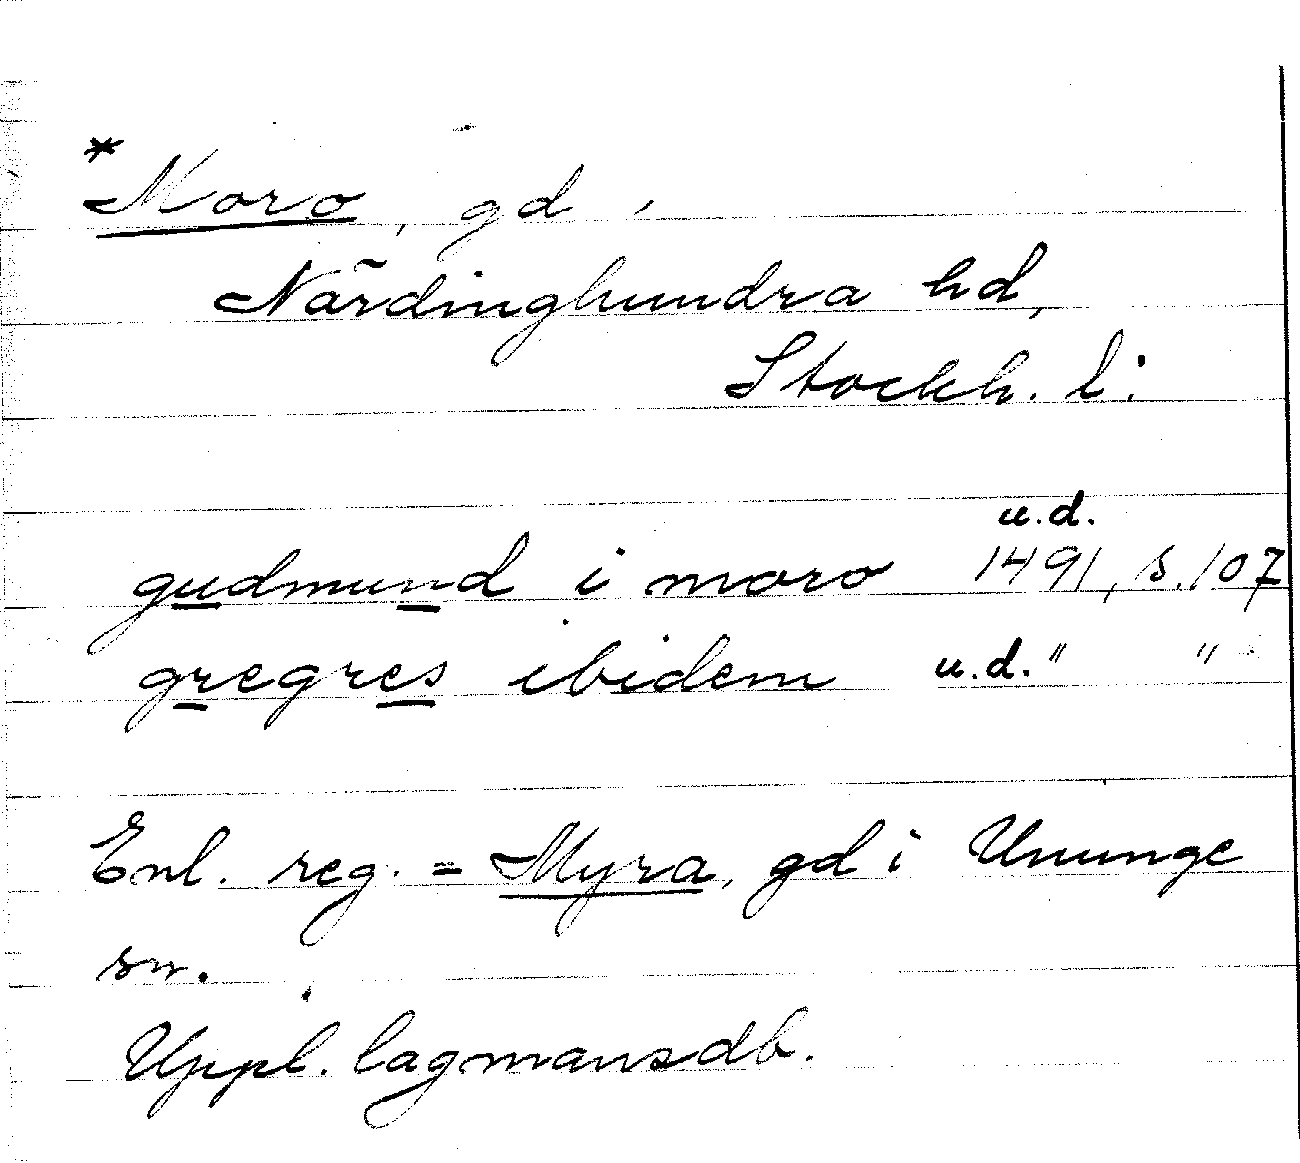 *Moro, gd,
Närdinghundra hd,
Stockh. l:
u.d.
gudmund i moro 1491, s. 107
gregres ibidem u.d. " "
Enl. reg. = Myra, gd i Ununge
sn.
Uppl. lagmansdb.